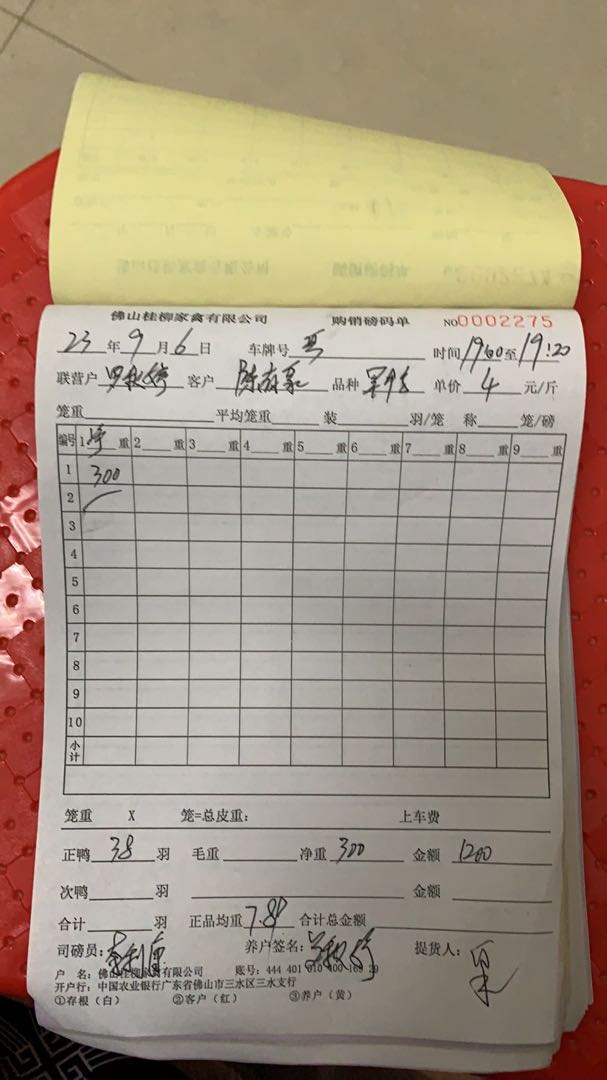 佛山桂柳家禽有限公司 购销磅码单 NO0002275
23 年 9 月 6 日 车牌号 时间 19:00 至 19:20
联营户 罗秋婷 客户 品种 单价 4 元/斤
笼重 平均笼重 装 羽/笼 称 笼/磅
编号 1 净 重 2 重 3 重 4 重 5 重 6 重 7 重 8 重 9 重
1 300
2
3
4
5
6
7
8
9
10
小计
笼重 X 笼=总皮重: 上车费
正鸭 38 羽 毛重 净重 300 金额 1200
次鸭 羽 金额
合计 羽 正品均重 7.89 合计总金额
司磅员: 养户签名: 罗秋婷 提货人:
户 名: 佛山桂柳家禽有限公司 账号: 444 401 010 400 169 29
开户行: 中国农业银行广东省佛山市三水区三水支行
①存根(白) ②客户(红) ③养户(黄)